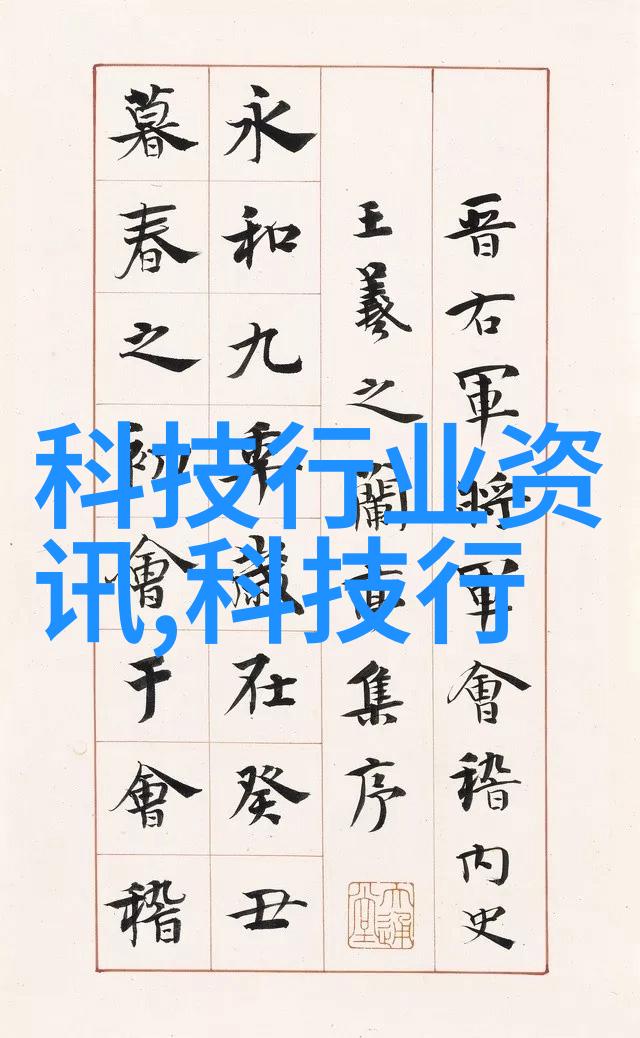 晋右軍将軍會稽内史
王羲之蘭亭集序
永和九年歲在癸丑
暮春之初會于會稽
科技行业资
讯,科技行